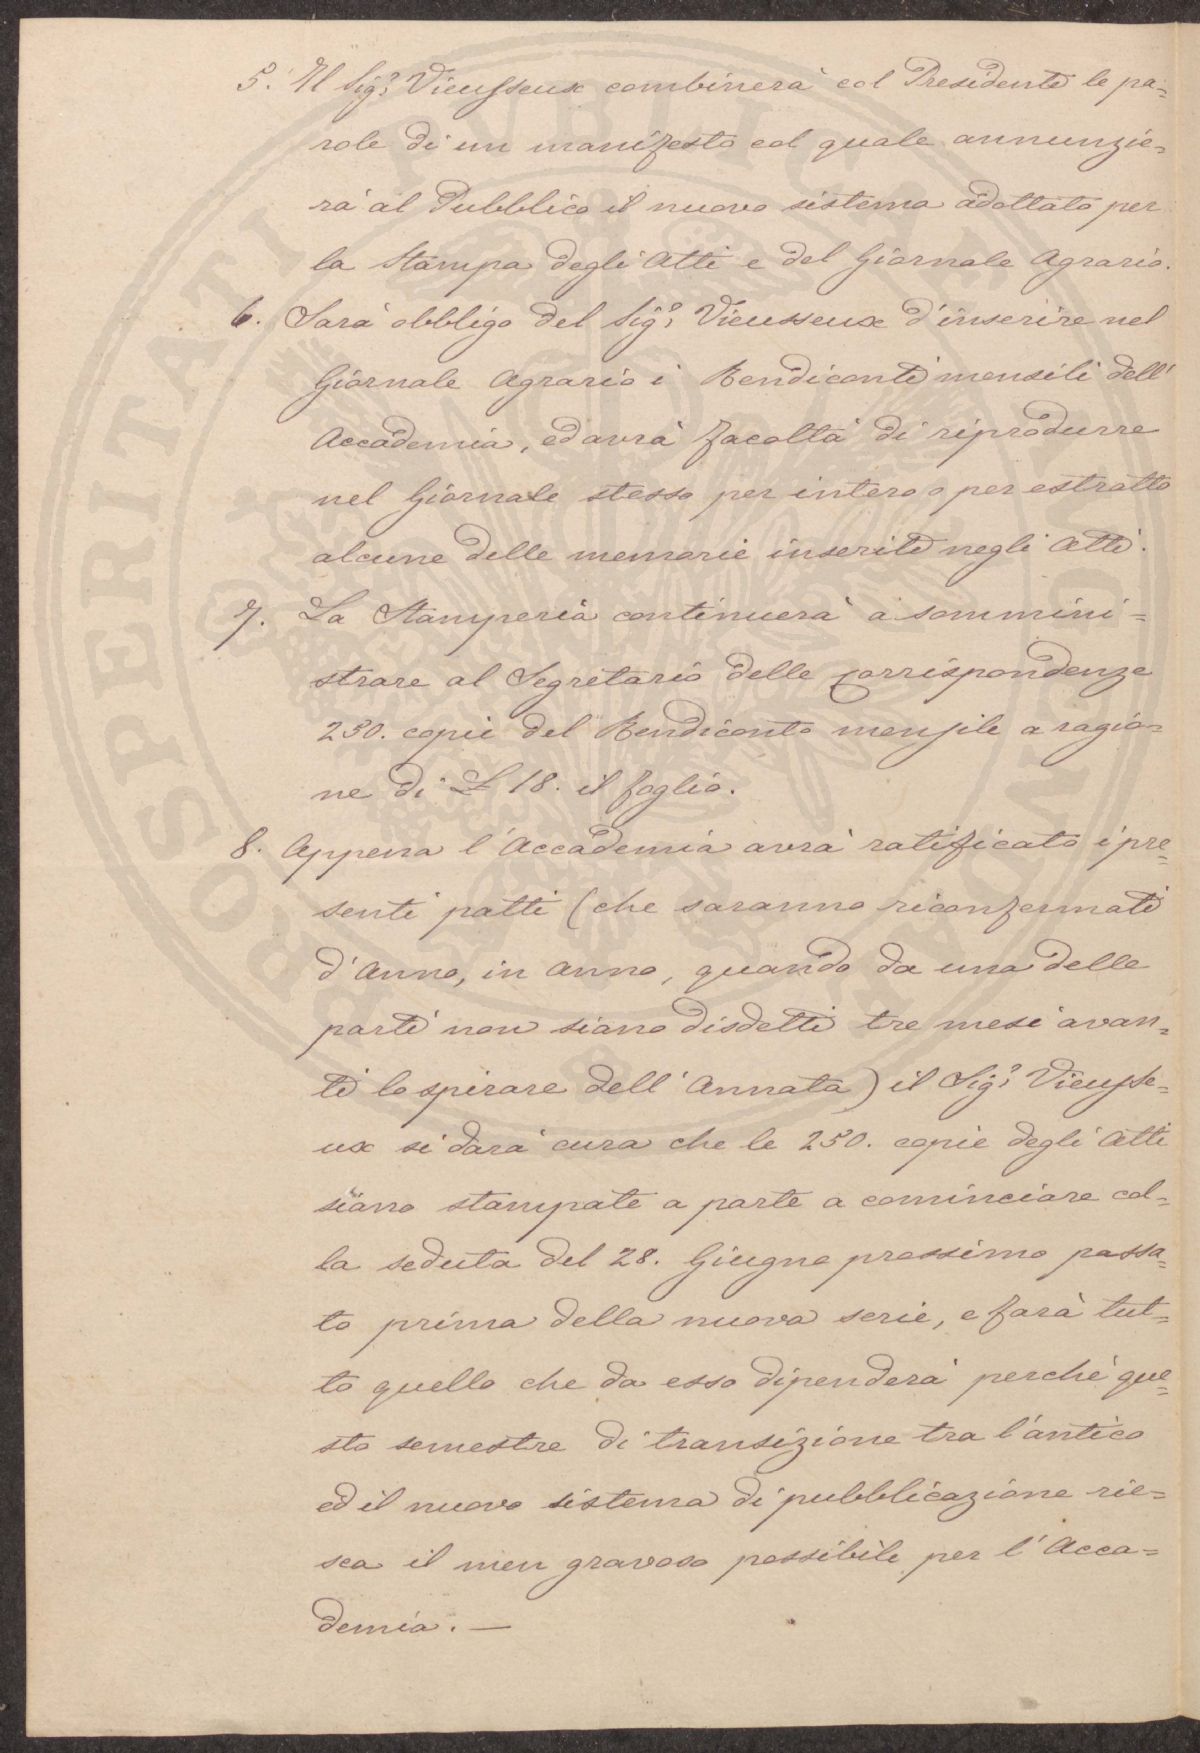 5. Il Sig.r Vieusseux combinerà col Presidente le pa=
role di un manifesto col quale annunzie=
rà al Pubblico il nuovo sistema adottato per
la Stampa degli Atti e del Giornale Agrario.
6. Sarà obbligo del Sig.r Vieusseux d'inserire nel
Giornale Agrario i Rendiconti mensili dell'
Accademia, ed avrà facoltà di riprodurre
nel Giornale stesso per intero o per estratto
alcune delle memorie inserite negli Atti.
7. La Stamperia continuerà a sommini=
strare al Segretario delle Corrispondenze
250. copie del Rendiconto mensile a ragio=
ne di £ 18. il foglio.
8. Appena l'Accademia avrà ratificato i pre=
senti patti (che saranno riconfermati
d'Anno, in Anno, quando da una delle
parti non siano disdetti tre mesi avan=
ti lo spirare dell'Annata) il Sig.r Vieusse=
ux si darà cura che le 250. copie degli Atti
siano stampate a parte a cominciare col=
la seduta del 28. Giugno prossimo passa=
to prima della nuova serie, e farà tut=
to quello che da esso dipenderà perchè que=
sto semestre di transizione tra l'antico
ed il nuovo sistema di pubblicazione rie=
sca il men gravoso possibile per l'Acca=
demia. —
PROSPERITATI PUBLICAE AUGENDAE